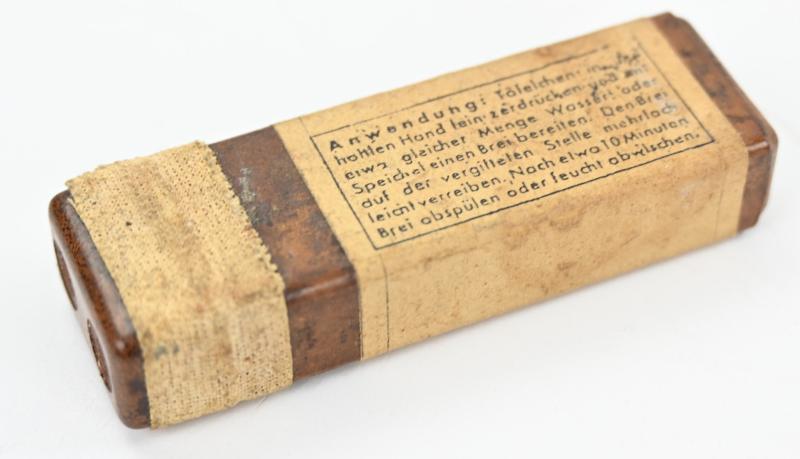 Anwendung: Täfelchen in der
hohlen Hand fein zerdrücken und mit
etwa gleicher Menge Wasser oder
Speichel einen Brei bereiten. Den Brei
auf der vergifteten Stelle mehrfach
leicht verreiben. Nach etwa 10 Minuten
Brei abspülen oder feucht abwischen.